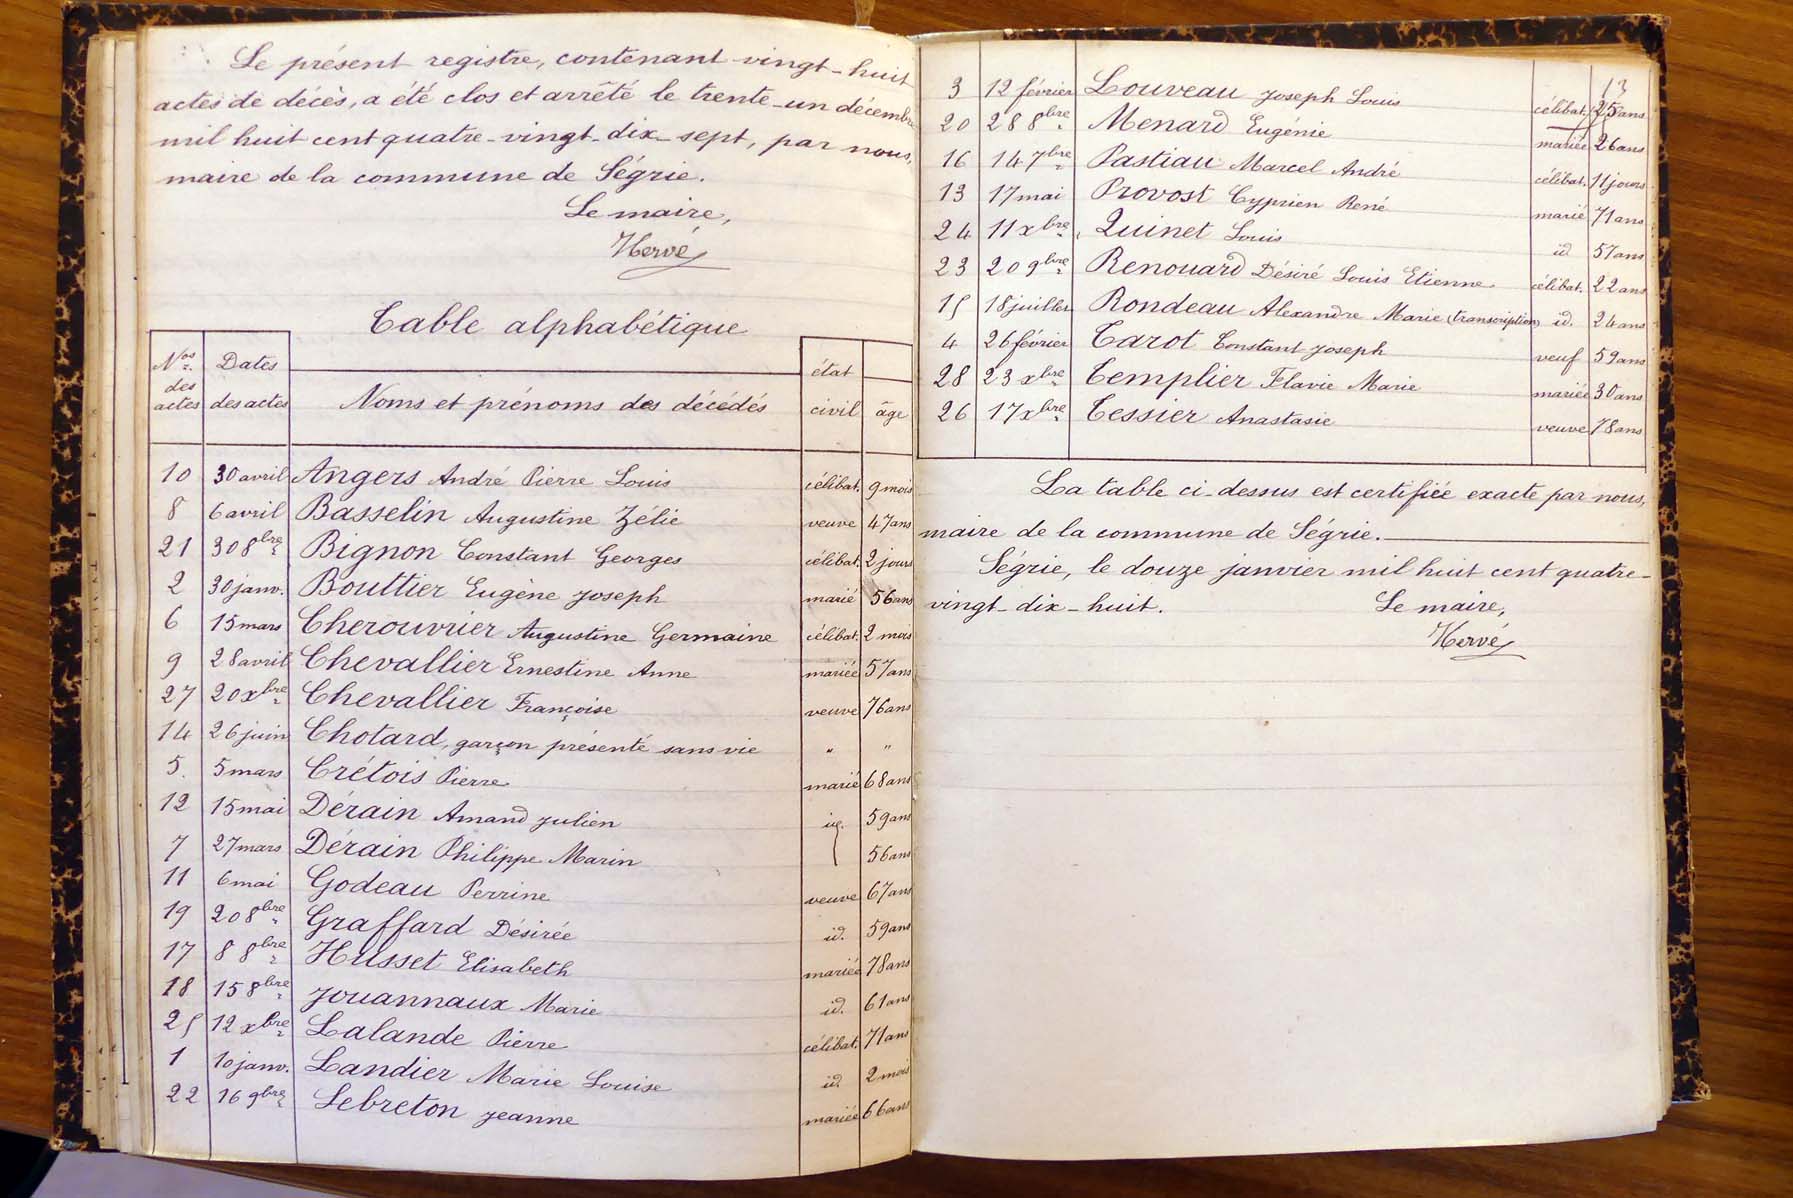 Le présent registre, contenant vingt-huit
actes de décès, a été clos et arrêté le trente-un décembre
mil huit cent quatre-vingt-dix-sept, par nous,
maire de la commune de Ségrie.
Le maire,
Hervé
Table alphabétique
Nos des actes Dates des actes Noms et prénoms des décédés état civil âge
10 30 avril Angers André Pierre Louis célibat. 9 mois
8 6 avril Basselin Augustine Zélie veuve 47 ans
21 30 8bre Bignon Constant Georges célibat. 2 jours
2 30 janv. Bouttier Eugène Joseph marié 56 ans
6 15 mars Cherouvrier Augustine Germaine célibat. 2 mois
9 28 avril Chevallier Ernestine Anne mariée 57 ans
27 20 xbre Chevallier Françoise veuve 76 ans
14 26 juin Chotard, garçon présenté sans vie " "
5. 5 mars Crétois Pierre marié 68 ans
12 15 mai Dérain Amand Julien id. 59 ans
7 27 mars Dérain Philippe Marin 56 ans
11 6 mai Godeau Perrine veuve 67 ans
19 20 8bre Graffard Désirée id. 59 ans
17 8 8bre Husset Elisabeth mariée 78 ans
18 15 8bre Jouannaux Marie id. 61 ans
25 12 xbre Lalande Pierre célibat. 71 ans
1 10 janv. Landier Marie Louise id. 2 mois
22 16 9bre Lebreton Jeanne mariée 66 ans
13
3 12 février Louveau Joseph Louis célibat. 25 ans
20 28 8bre Menard Eugénie mariée 26 ans
16 14 7bre Pastiau Marcel André célibat. 11 jours
13 17 mai Provost Cyprien René marié 71 ans
24 11 xbre Quinet Louis id 57 ans
23 20 9bre Renouard Désiré Louis Etienne célibat. 22 ans
15 18 juillet Rondeau Alexandre Marie (transcription) id. 24 ans
4 26 février Tarot Constant Joseph veuf 59 ans
28 23 xbre Templier Flavie Marie mariée 30 ans
26 17 xbre Tessier Anastasie veuve 78 ans
La table ci-dessus est certifiée exacte par nous,
maire de la commune de Ségrie.
Ségrie, le douze janvier mil huit cent quatre-
vingt-dix-huit. Le maire,
Hervé